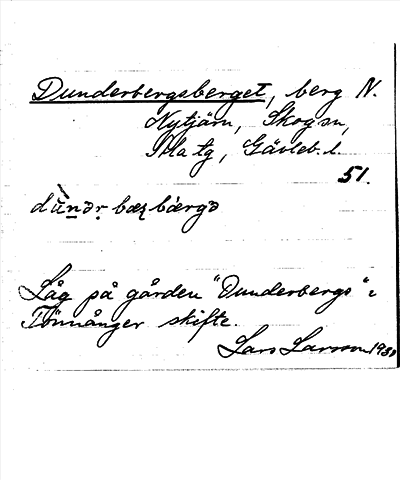 Dunderbergsberget, berg N.
Nytjärn, Skog sn,
Ala tg, Gävleb. l.
51.
dùndr bæʐbærgə
Låg på gården "Dunderbergs" i
Tönnånger skifte.
Lars Larsson